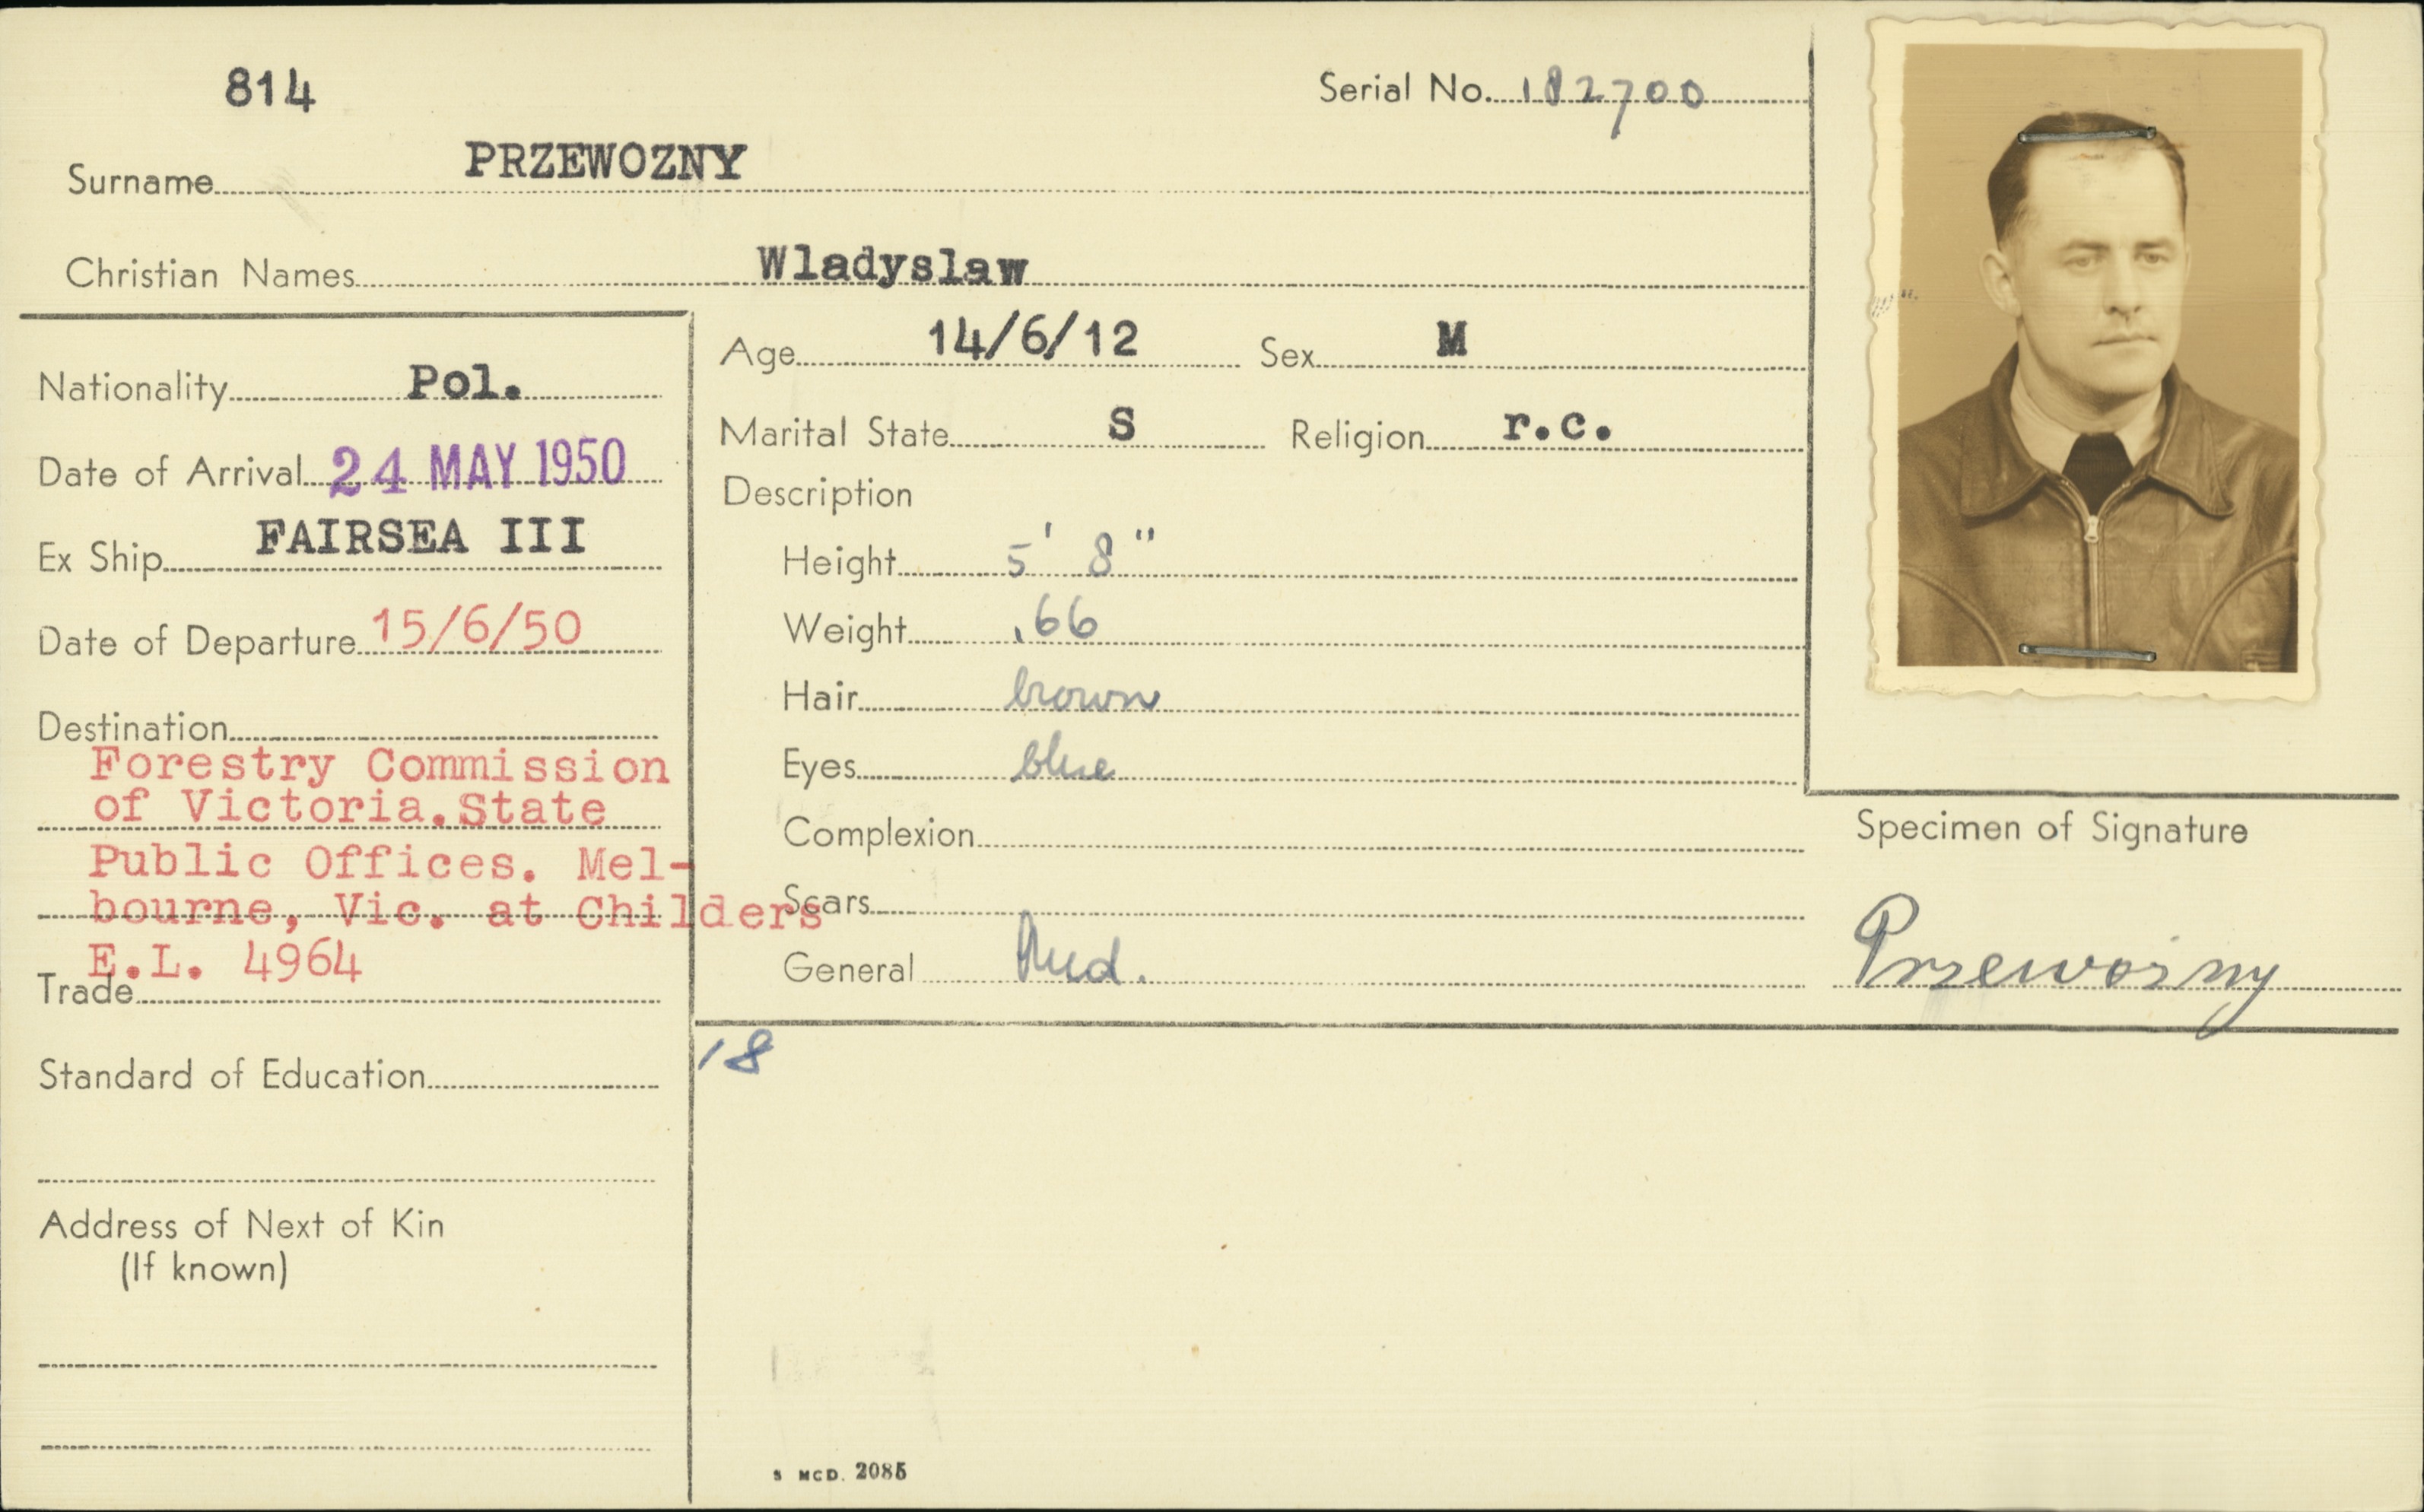 814
Serial No. 182700
Surname PRZEWOZNY
Christian Names Wladyslaw
Nationality Pol.
Date of Arrival 24 MAY 1950
Ex Ship FAIRSEA III
Date of Departure 15/6/50
Destination
Forestry Commission
of Victoria. State
Public Offices. Mel-
bourne, Vic. at Childers
E.L. 4964
Trade
Standard of Education
Address of Next of Kin
(If known)
Age 14/6/12 Sex M
Marital State S Religion r.c.
Description
Height 5' 8"
Weight .66
Hair brown
Eyes blue
Complexion
Scars
General
18
Specimen of Signature
Przewozny
S MCD. 2085